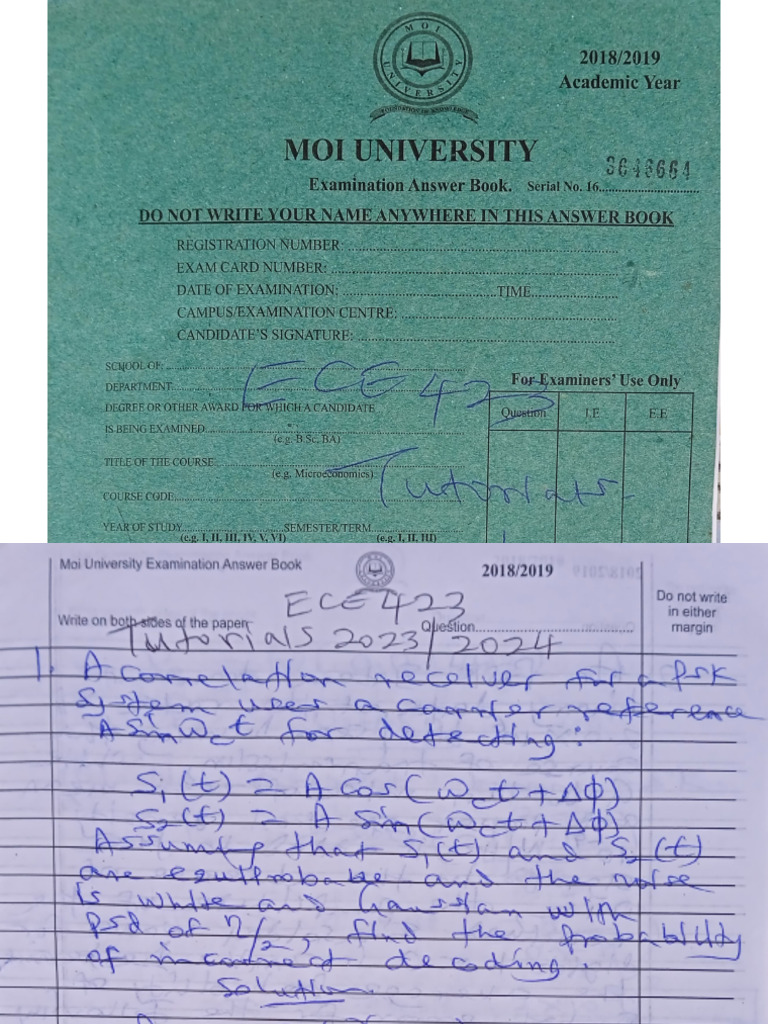 MOI UNIVERSITY
FOUNDATION OF KNOWLEDGE
2018/2019
Academic Year
MOI UNIVERSITY
Examination Answer Book. Serial No. 16. 3646664
DO NOT WRITE YOUR NAME ANYWHERE IN THIS ANSWER BOOK
REGISTRATION NUMBER:
EXAM CARD NUMBER:
DATE OF EXAMINATION: TIME
CAMPUS/EXAMINATION CENTRE:
CANDIDATE'S SIGNATURE:
SCHOOL OF:
DEPARTMENT
ECE 423
For Examiners' Use Only
DEGREE OR OTHER AWARD FOR WHICH A CANDIDATE
Question I.E E.E
IS BEING EXAMINED
(e.g. B.Sc, BA)
TITLE OF THE COURSE
(e.g. Microeconomics)
Tutorials
COURSE CODE
YEAR OF STUDY SEMESTER/TERM
(e.g. I, II, III, IV, V, VI) (e.g. I, II, III)
Moi University Examination Answer Book
2018/2019
Do not write
in either
margin
ECE 423
Write on both sides of the paper Question
Tutorials 2023/2024
1. A correlation receiver for a PSK
System uses a carrier reference
A Sin ωct for detecting:
S1(t) = A Cos(ωct + Δϕ)
S2(t) = A Sin(ωct + Δϕ)
Assuming that S1(t) and S2(t)
are equiprobable and the noise
is white and Gaussian with
psd of η/2, find the probability
of incorrect decoding.
Solution